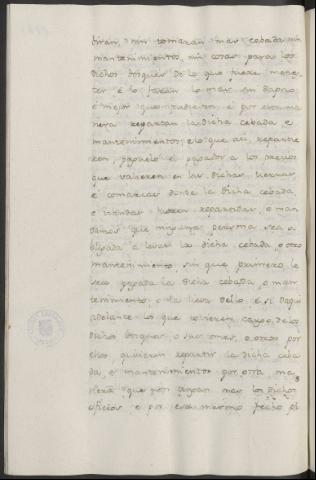 diran, nin tomaran mas cebada nin
mantenimientos, nin cosas para los
dichos de lo que fuere menes
ter é lo faran lo mas sin daño
é mejor que pudieren é por esta ma
nera repartan la dicha cebada, e
mantenimientos, é lo que asi repartie
ren, paguelo el pagador a los precios
que valieren en las dichas tierras,
é comarcas donde la dicha cebada,
e viandas fueren repartidas, o man
damos que ninguna persona sea o
bligada a levar la dicha cebada, o otro
mantenimiento, sin que primero le
sea pagada la dicha cebada, o man
tenimiento, o la lieva dello, é si daqui
adelante lo que tovieren cargo, de los
dichos o sus omes, o otros por
ellos quisieren repartir la dicha ceba
da, é mantenimientos por otra ma
nera que non ayan mas los dichos
oficios, é por ese mesmo fecho